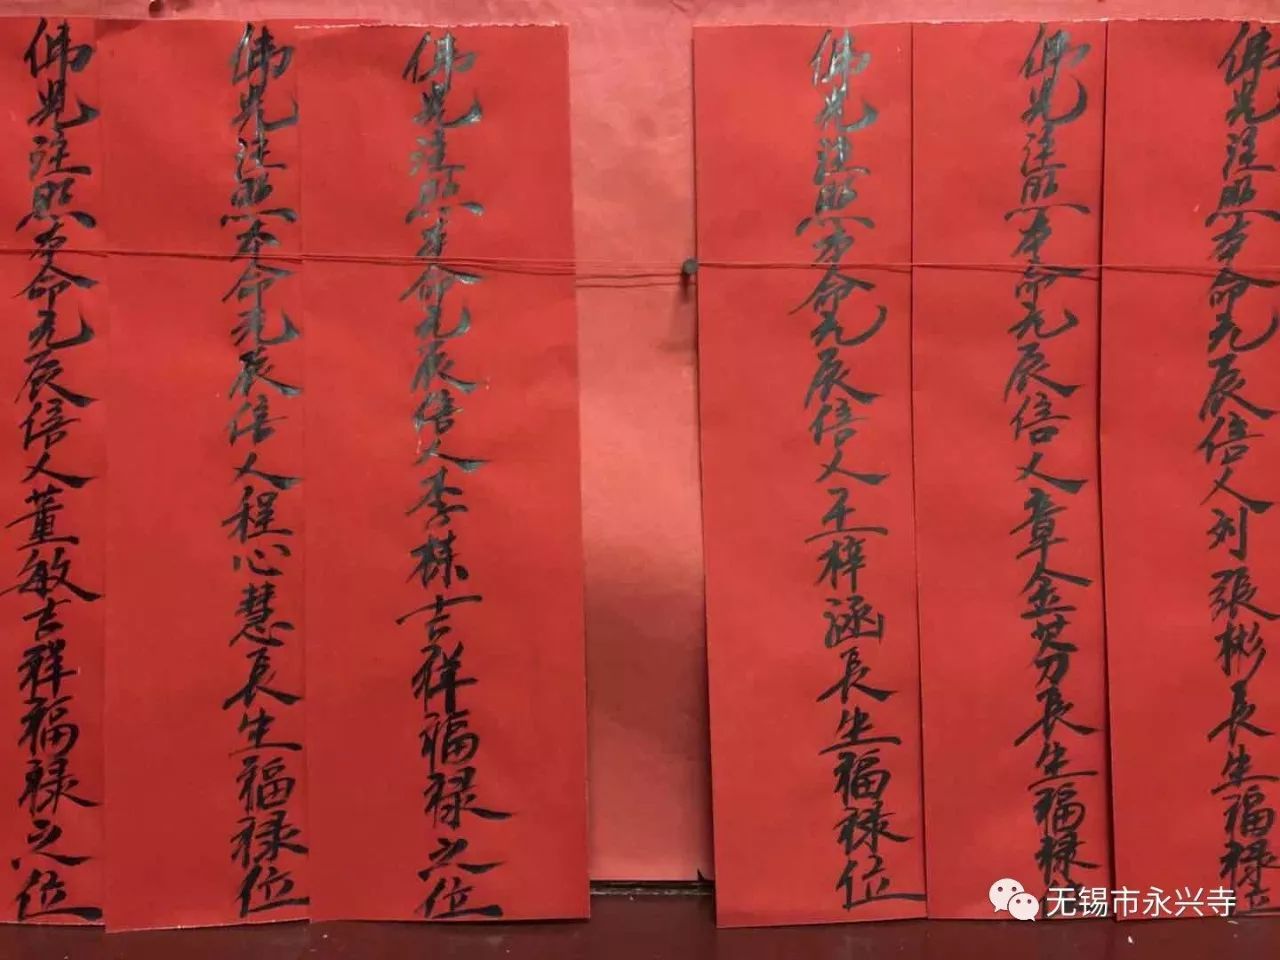 佛光注照本命元辰信人列張彬長生福祿位
佛光注照本命元辰信人章金芳長生福祿位
佛光注照本命元辰信人王梓涵長生福祿位
佛光注照本命元辰信人李棟吉祥福祿之位
佛光注照本命元辰信人程心慧長生福祿位
佛光注照本命元辰信人董敏吉祥福祿之位
无锡市永兴寺